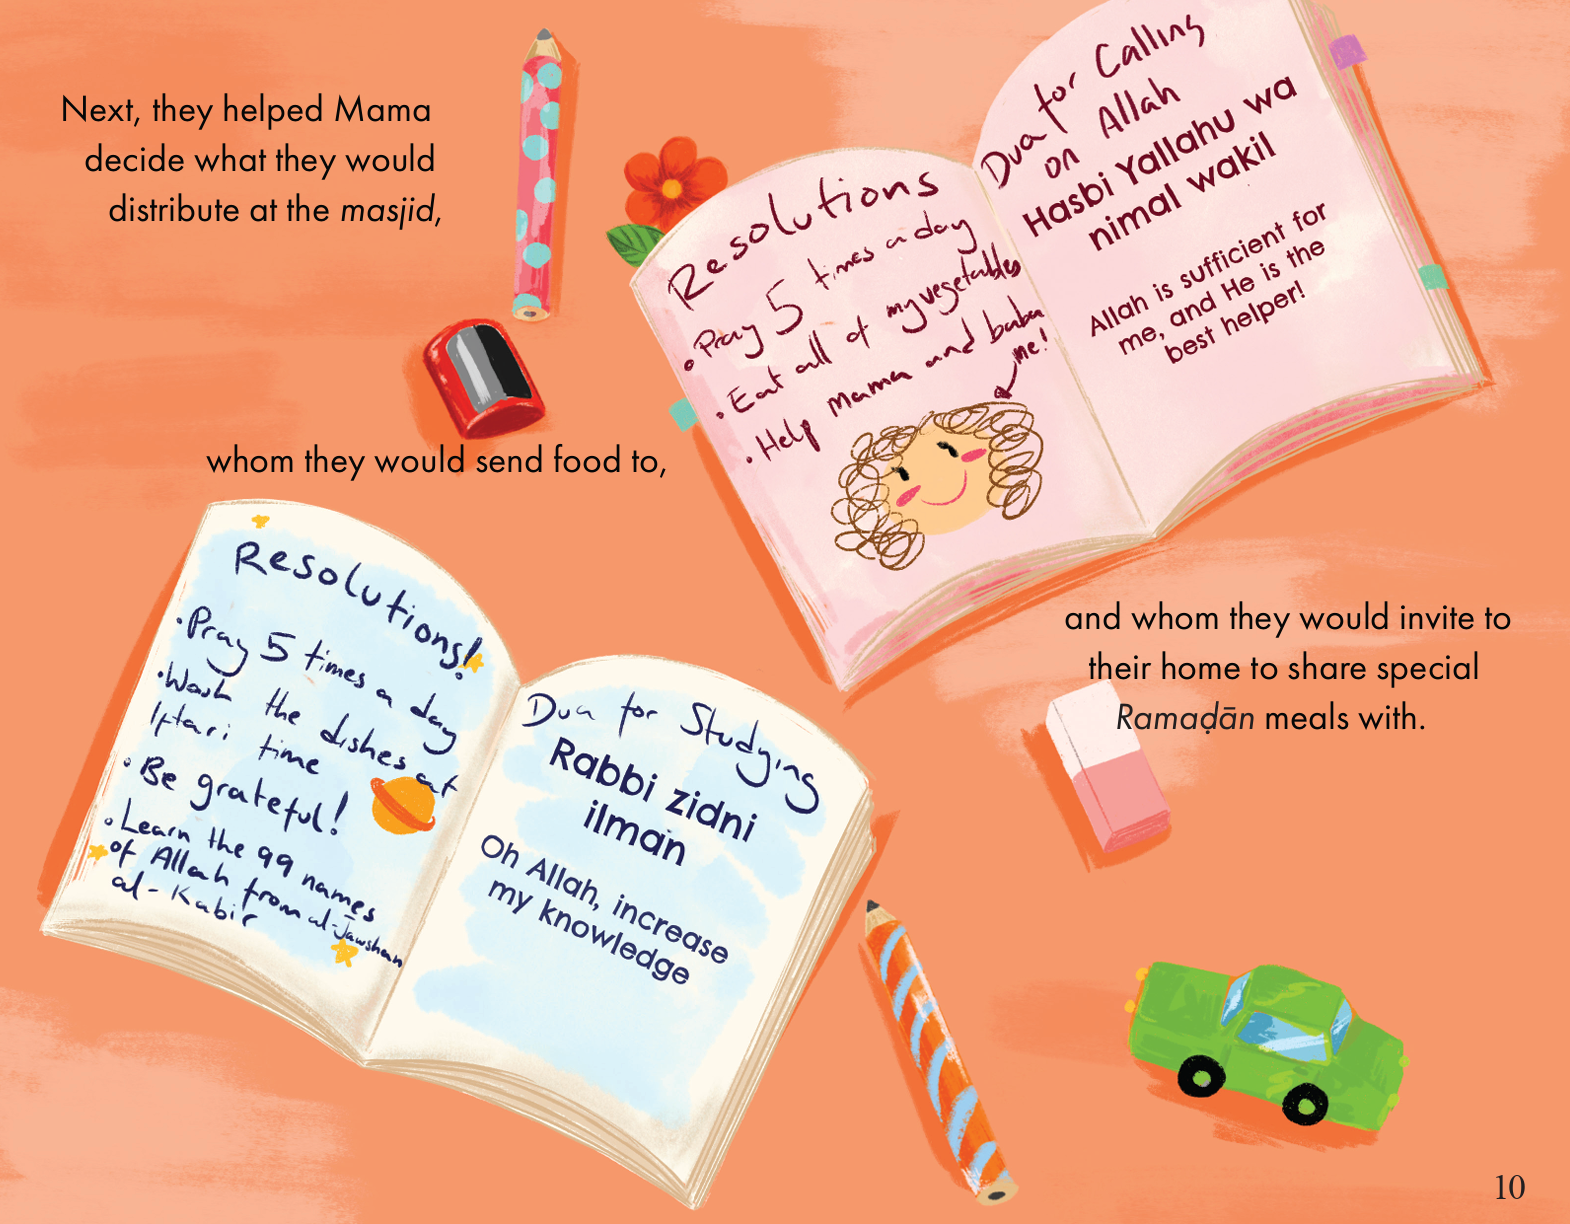 Next, they helped Mama
decide what they would
distribute at the masjid,
whom they would send food to,
and whom they would invite to
their home to share special
Ramaḍān meals with.
Resolutions
• Pray 5 times a day
• Eat all of my vegetables
• Help Mama and baba
me!
Dua for Calling
on Allah
Hasbi Yallahu wa
nimal wakil
Allah is sufficient for
me, and He is the
best helper!
Resolutions!
• Pray 5 times a day
• Wash the dishes at
Iftari time
• Be grateful!
• Learn the 99 names
of Allah from al-Jawshan
al-Kabir
Dua for Studying
Rabbi zidni
ilman
Oh Allah, increase
my knowledge
10